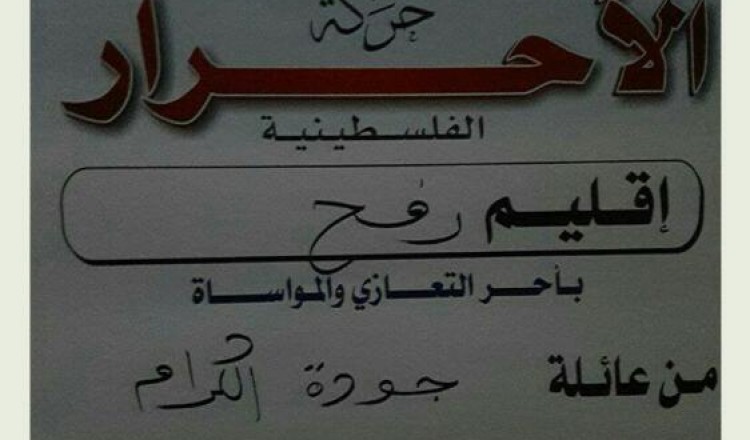 حركة
الأحرار
الفلسطينية
إقليم رفح
بأحر التعازي والمواساة
من عائلة جودة الكرام